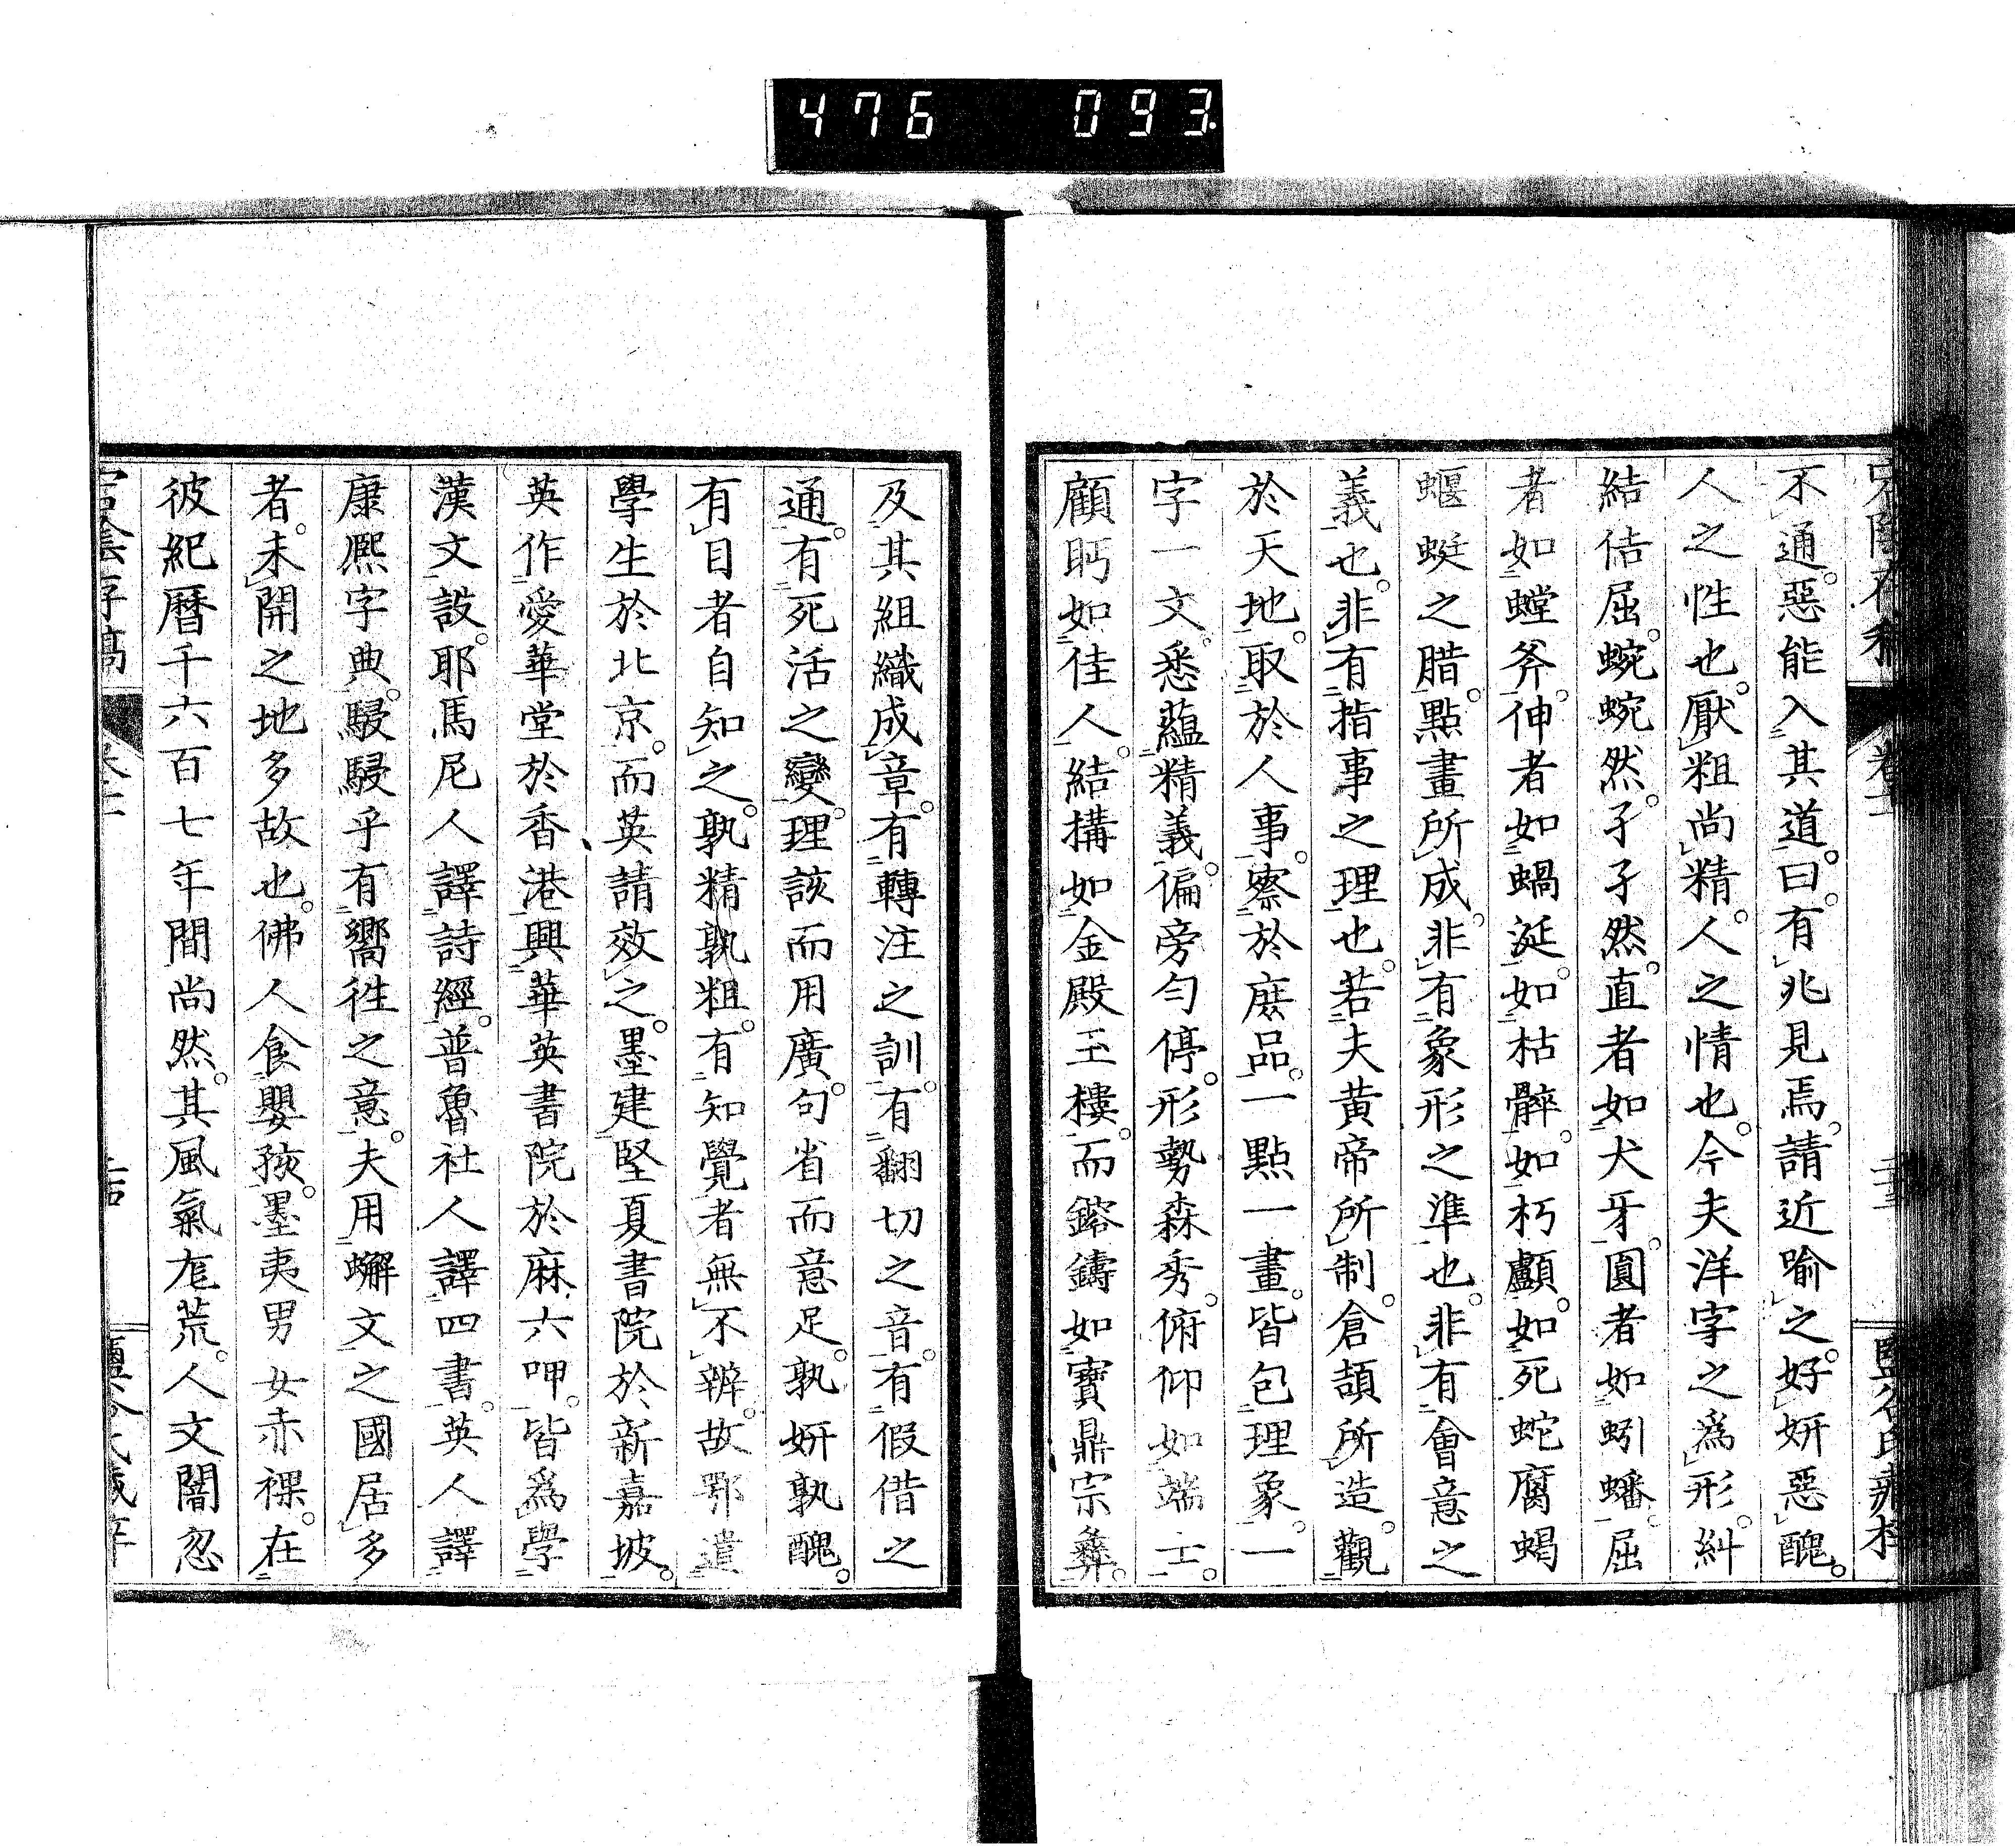 476 093.
不通。惡能入其道。曰。有兆見焉。請近喻之。好妍惡醜。
人之性也。厭粗尚精。人之情也。今夫洋字之爲形。糾
結佶屈。蜿蜿然。孑孑然。直者如犬牙。圓者如蚓蟠。屈
者如螳斧。伸者如蝸涎。如枯髀。如朽顱。如死蛇腐蝎
蝘蜓之腊。點畫所成。非有象形之準也。非有會意之
義也。非有指事之理也。若夫黃帝所制。倉頡所造。觀
於天地。取於人事。察於庶品。一點一畫。皆包理象。一
字一文。悉蘊精義。偏旁勻停。形勢森秀。俯仰如端士。
顧眄如佳人。結搆如金殿玉樓。而鎔鑄如寶鼎宗彝。
及其組織成章。有轉注之訓。有翻切之音。有假借之
通。有死活之變。理該而用廣。句省而意足。孰妍孰醜。
有目者自知之。孰精孰粗。有知覺者無不辨。故鄂遣
學生於北京。而英請效之。墨建堅夏書院於新嘉坡。
英作愛華堂於香港。興華英書院於麻六呷。皆爲學
漢文設。耶馬尼人譯詩經。普魯社人譯四書。英人譯
康熙字典。駸駸乎有嚮徃之意。夫用蠏文之國居多
者。未開之地多故也。佛人食嬰孩。墨夷男女赤裸。在
彼紀曆千六百七年間尚然。其風氣尨荒。人文闇忽